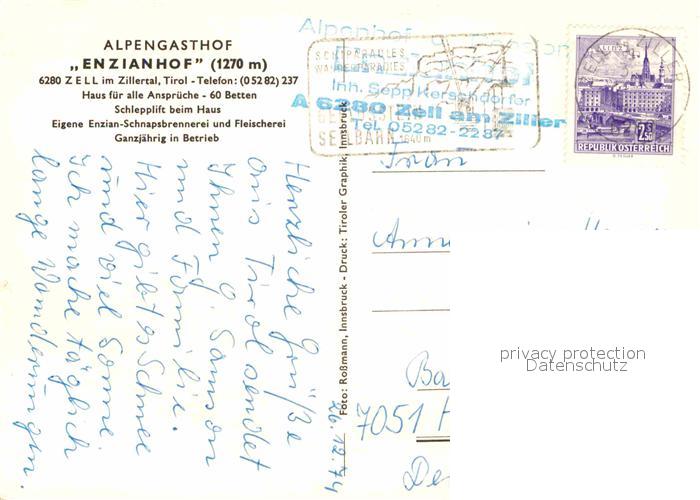 ALPENGASTHOF
„ENZIANHOF" (1270 m)
6280 ZELL im Zillertal, Tirol - Telefon: (0 52 82) 237
Haus für alle Ansprüche - 60 Betten
Schlepplift beim Haus
Eigene Enzian-Schnapsbrennerei und Fleischerei
Ganzjährig in Betrieb
Inh. Sepp Kerschdorfer
A 6280 Zell am Ziller
Tel. 05282-2237
SEILBAHN 1840 m
2.50
REPUBLIK ÖSTERREICH
Foto: Roßmann, Innsbruck - Druck: Tiroler Graphik, Innsbruck
Herzliche Grüße
aus Tirol sendet
Ihnen G. Samson
und Familie.
Hier gibt es Schnee
und viel Sonne
Ich mache täglich
lange Wanderungen.
26.12.74
Frau
7051
privacy protection
Datenschutz